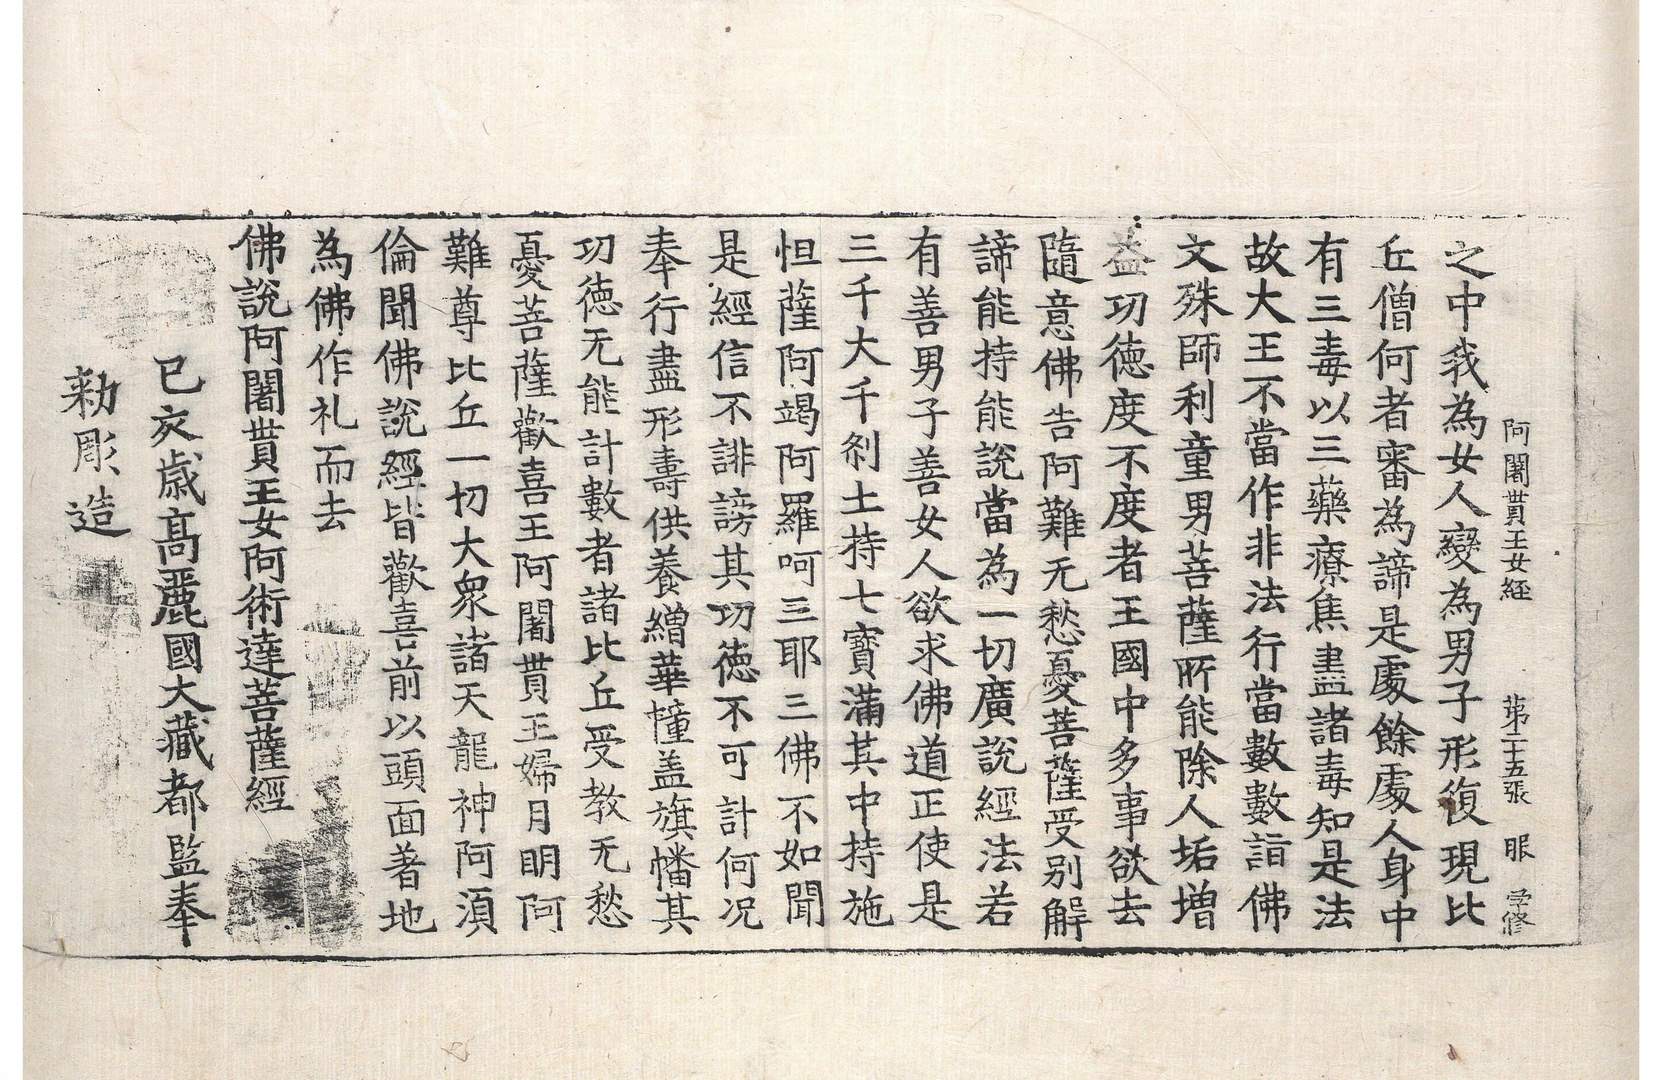 阿闍貰王女經　第二十五張　服　学修
之中我為女人變為男子形復現比
丘僧何者審為諦是處餘處人身中
有三毒以三藥療焦盡諸毒知是法
故大王不當作非法行當數數詣佛
文殊師利童男菩薩所能除人垢增
益功德度不度者王國中多事欲去
隨意佛告阿難无愁憂菩薩受别解
諦能持能說當為一切廣說經法若
有善男子善女人欲求佛道正使是
三千大千刹土持七寶滿其中持施
怛薩阿竭阿羅呵三耶三佛不如聞
是經信不誹謗其功德不可計何况
奉行盡形壽供養繒華幢盖旗幡其
功德无能計數者諸比丘受教无愁
憂菩薩歡喜王阿闍貰王婦月明阿
難尊比丘一切大衆諸天龍神阿須
倫聞佛說經皆歡喜前以頭面著地
為佛作礼而去
佛說阿闍貰王女阿術達菩薩經
己亥歲高麗國大藏都監奉
勑彫造